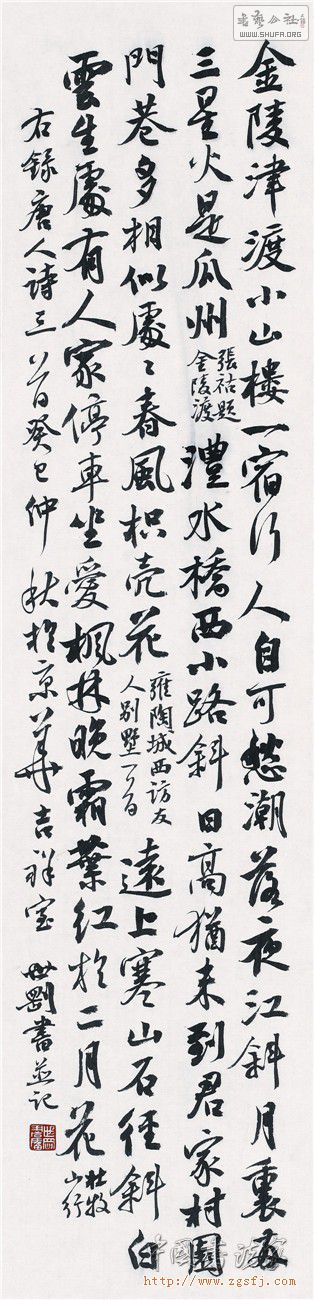 書藝公社
WWW.SHUFA.ORG
金陵津渡小山樓一宿行人自可愁潮落夜江斜月裏兩
三星火是瓜州
張祜題
金陵渡
澧水橋西小路斜日高猶未到君家村園
門巷多相似處〻春風枳壳花
雍陶城西訪友
人別墅一首
遠上寒山石徑斜白
雲生處有人家停車坐愛楓林晚霜葉紅於二月花
杜牧
山行
右錄唐人詩三首癸巳仲秋於京華吉祥室世剛書並記
http://www.zgsfj.com